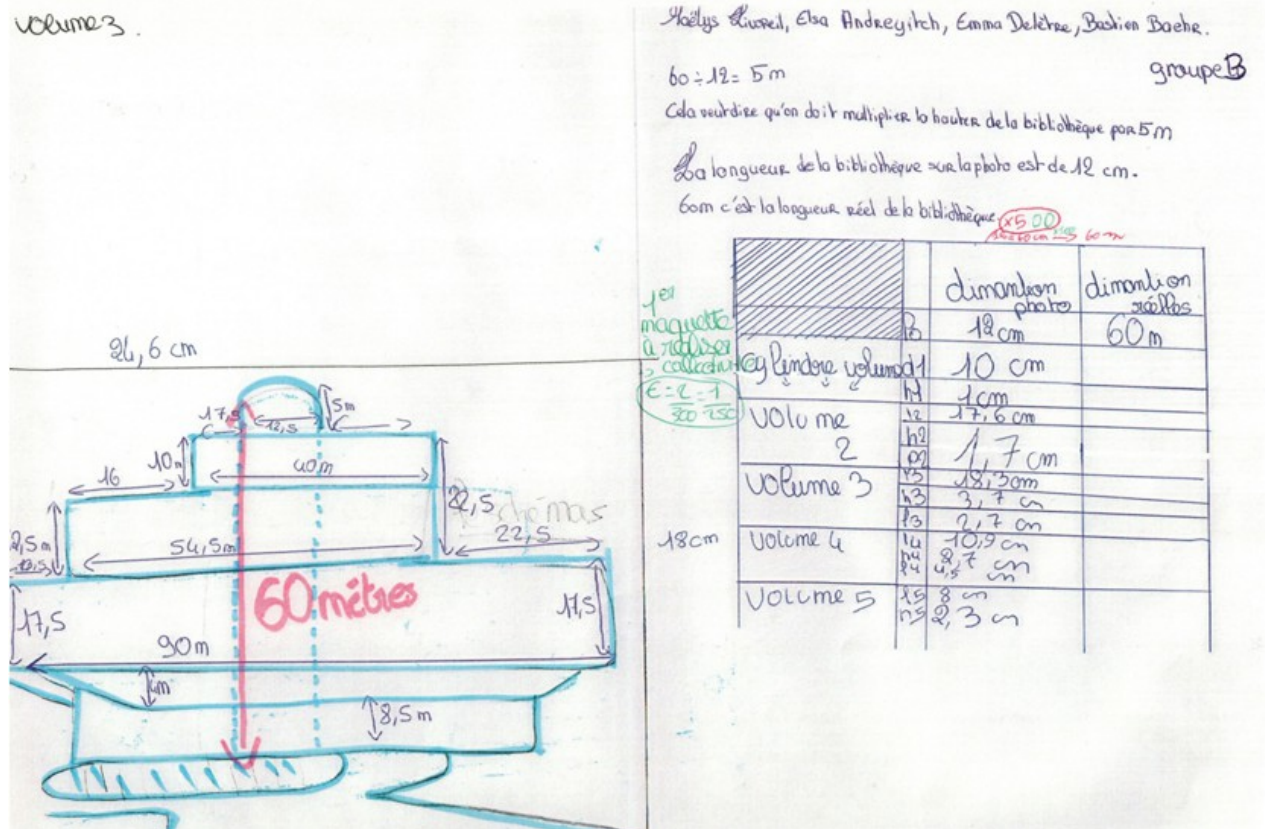 volume 3.
24,6 cm
17,5
12,5
5m
10m
40m
16
22,5
schémas
22,5
54,5m
2,5m
12,5
17,5
60 mètres
17,5
90m
4m
8,5m
Elsa Andreyitch, Emma Delètre, Bastien Baehr.
groupe B
60 ÷ 12 = 5 m
Cela veut dire qu'on doit multiplier la hauter de la bibliothèque par 5 m
La longueur de la bibliothèque sur la photo est de 12 cm.
60m c'est la longueur réel de la bibliothèque.
x500
60 m
1er
maquette
à réaliser
collective
E = 2 = 1
300 250
18cm
dimention photo
dimention réélles
12 cm
60 m
Cylindre volume d1 10 cm
h1 1cm
volume 2
l2 17,6 cm
h2
1,7 cm
volume 3
18,3cm
h3 3,7 cm
l3 2,7 cm
volume 4
l4 10,9 cm
h4 2,7 cm
4,5 cm
volume 5
l5 8 cm
h5 2,3 cm